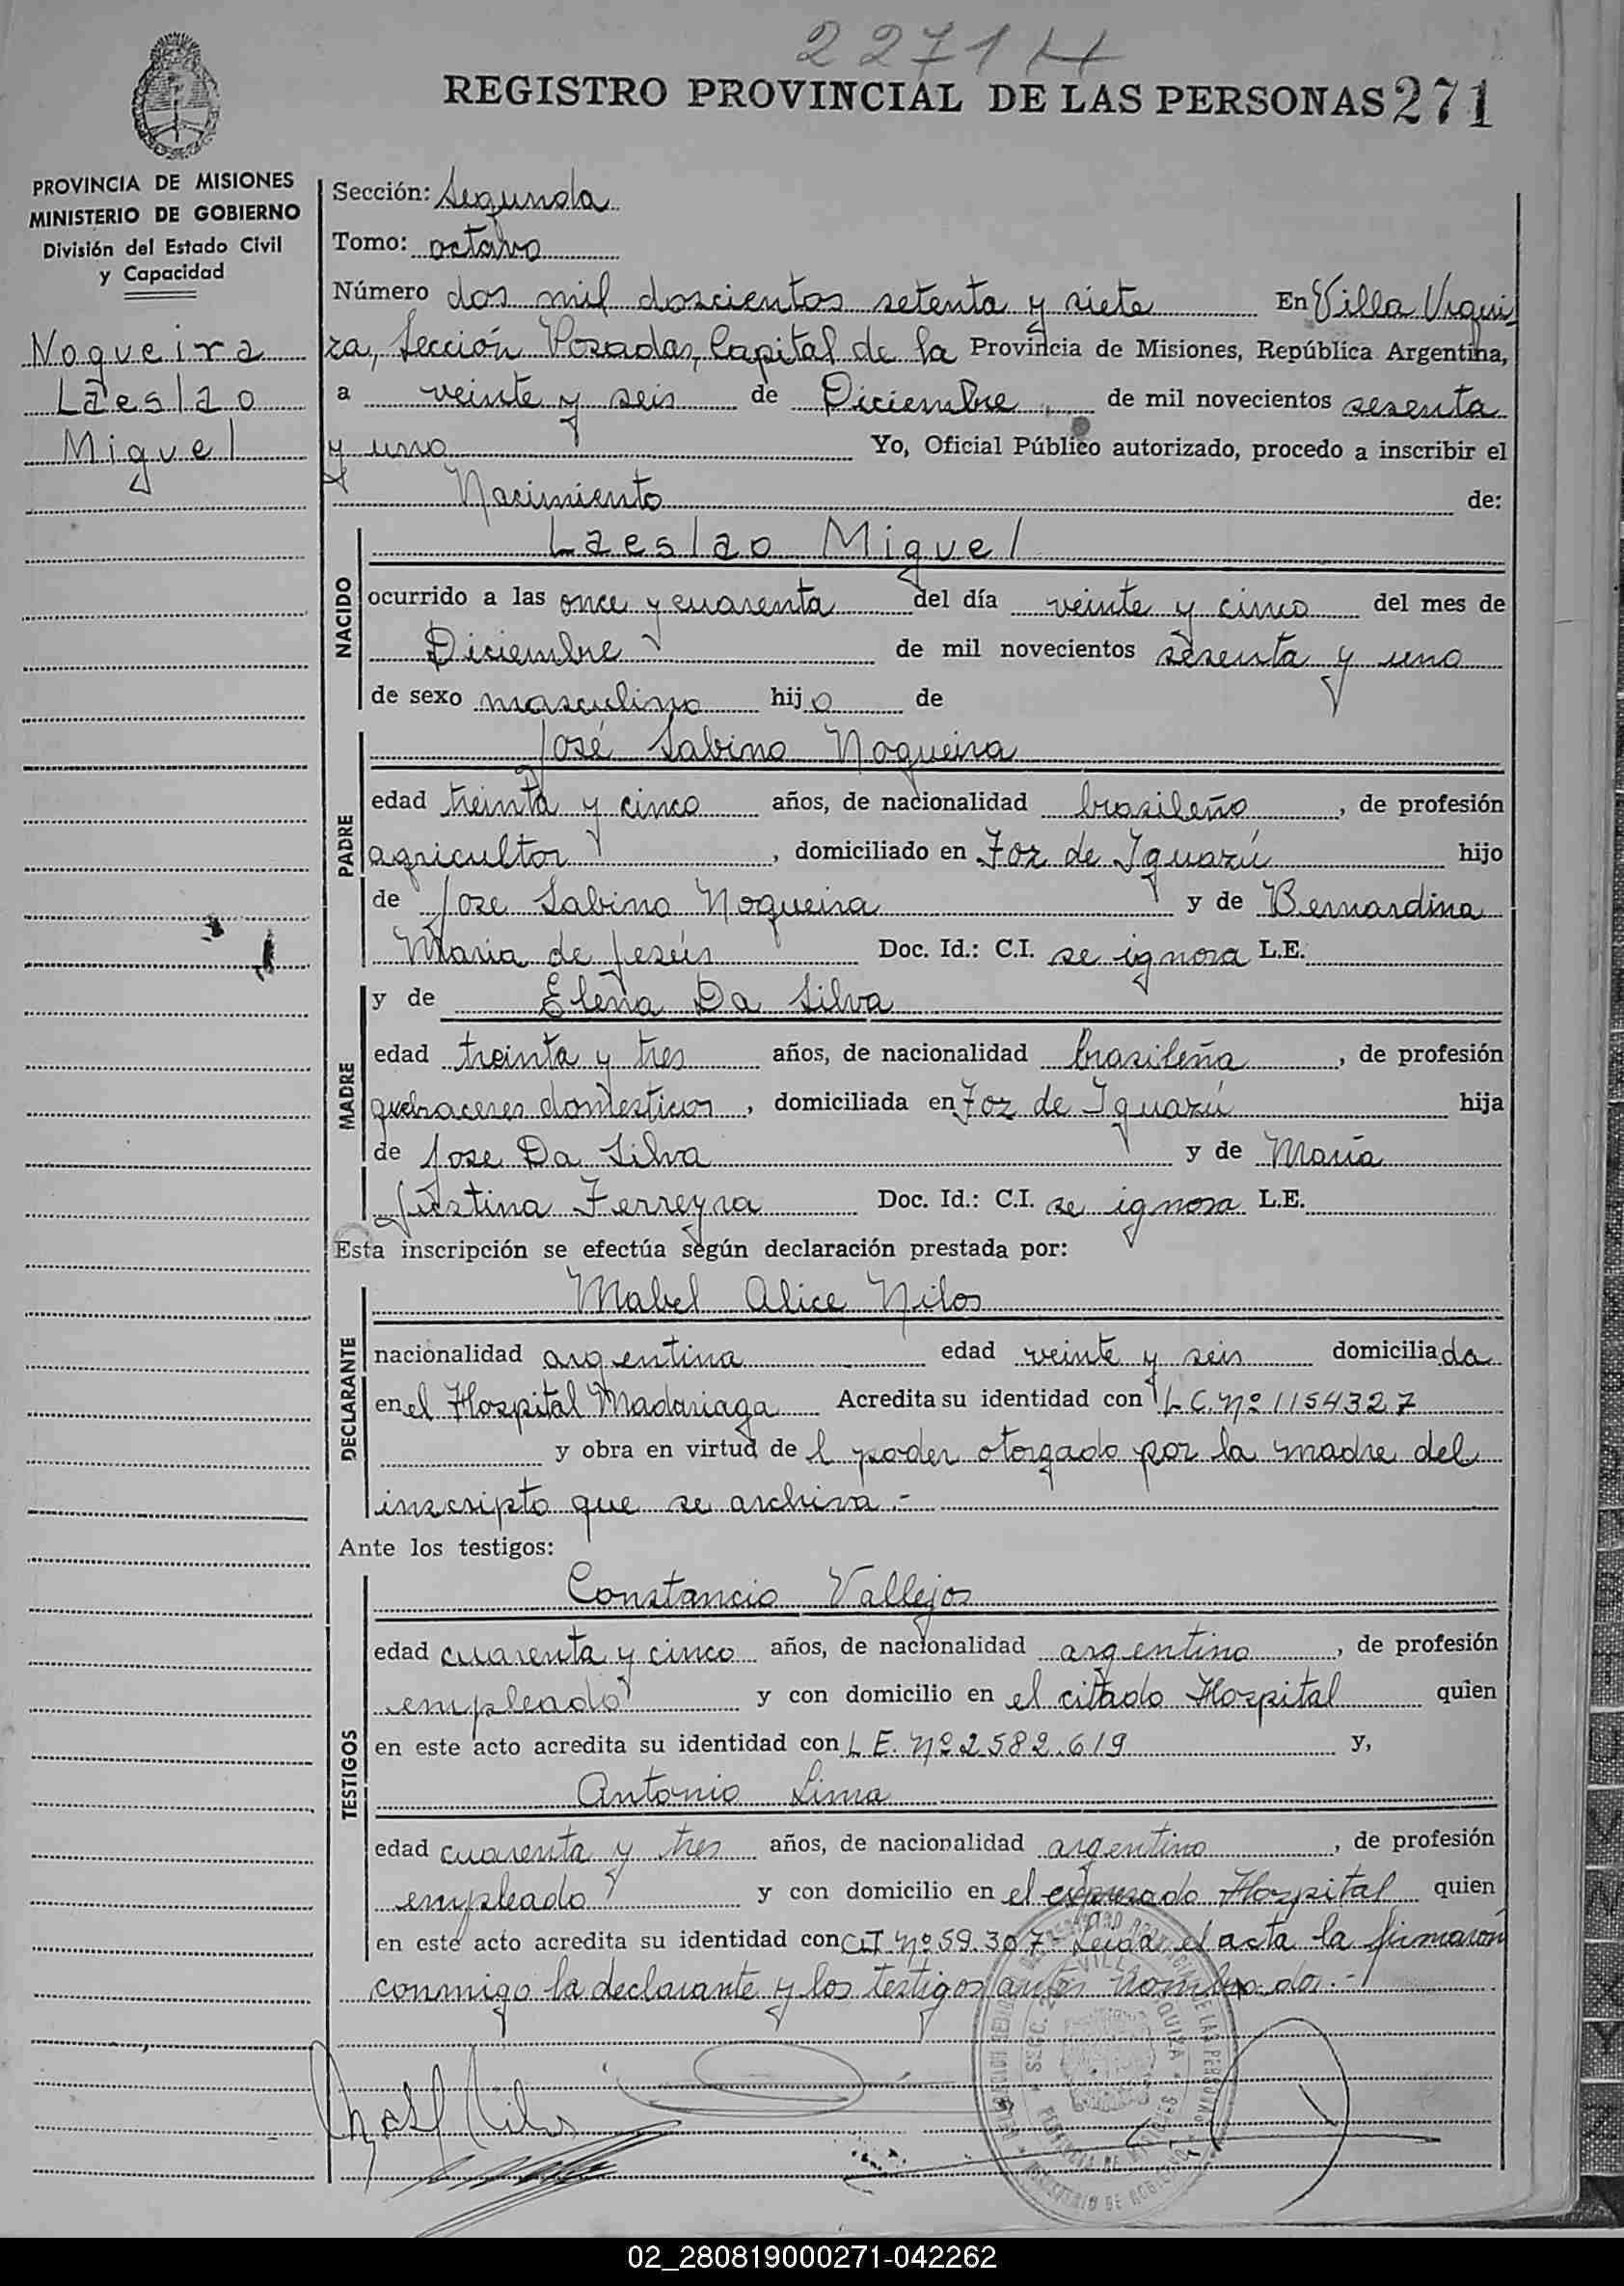 2271 H
REGISTRO PROVINCIAL DE LAS PERSONAS 271
PROVINCIA DE MISIONES
MINISTERIO DE GOBIERNO
División del Estado Civil
y Capacidad
Nogueira
Laeslao
Miguel
Sección: Segunda
Tomo: octavo
Número dos mil doscientos setenta y siete En Villa Urqui-
za, Sección Posadas, Capital de la Provincia de Misiones, República Argentina,
a veinte y seis de Diciembre de mil novecientos sesenta
y uno Yo, Oficial Público autorizado, procedo a inscribir el
Nacimiento de:
NACIDO
Laeslao Miguel
ocurrido a las once y cuarenta del día veinte y cinco del mes de
Diciembre de mil novecientos sesenta y uno
de sexo masculino hijo de
PADRE
José Sabino Nogueira
edad treinta y cinco años, de nacionalidad brasileño, de profesión
agricultor, domiciliado en Foz de Iguazú hijo
de Jose Sabino Nogueira y de Bernardina
Maria de Jesús Doc. Id.: C.I. se ignora L.E.
MADRE
y de Elena Da Silva
edad treinta y tres años, de nacionalidad brasileña, de profesión
quehaceres domesticos, domiciliada en Foz de Iguazú hija
de Jose Da Silva y de María
Ferreyra Doc. Id.: C.I. se ignora L.E.
Esta inscripción se efectúa según declaración prestada por:
DECLARANTE
Mabel Alice Nilos
nacionalidad argentina edad veinte y seis domiciliada
en el Hospital Madariaga Acredita su identidad con L.C. Nº 1154327
y obra en virtud de l poder otorgado por la madre del
inscripto que se archiva.-
Ante los testigos:
TESTIGOS
Constancio Vallejos
edad cuarenta y cinco años, de nacionalidad argentino, de profesión
empleado y con domicilio en el citado Hospital quien
en este acto acredita su identidad con L E. Nº 2582.619 y,
Antonio Lima
edad cuarenta y tres años, de nacionalidad argentino, de profesión
empleado y con domicilio en el expresado Hospital quien
en este acto acredita su identidad con C.I. Nº 59.307- Leida el acta la firmaron
conmigo la declarante y los testigos antes nombrados.-
02_280819000271-042262